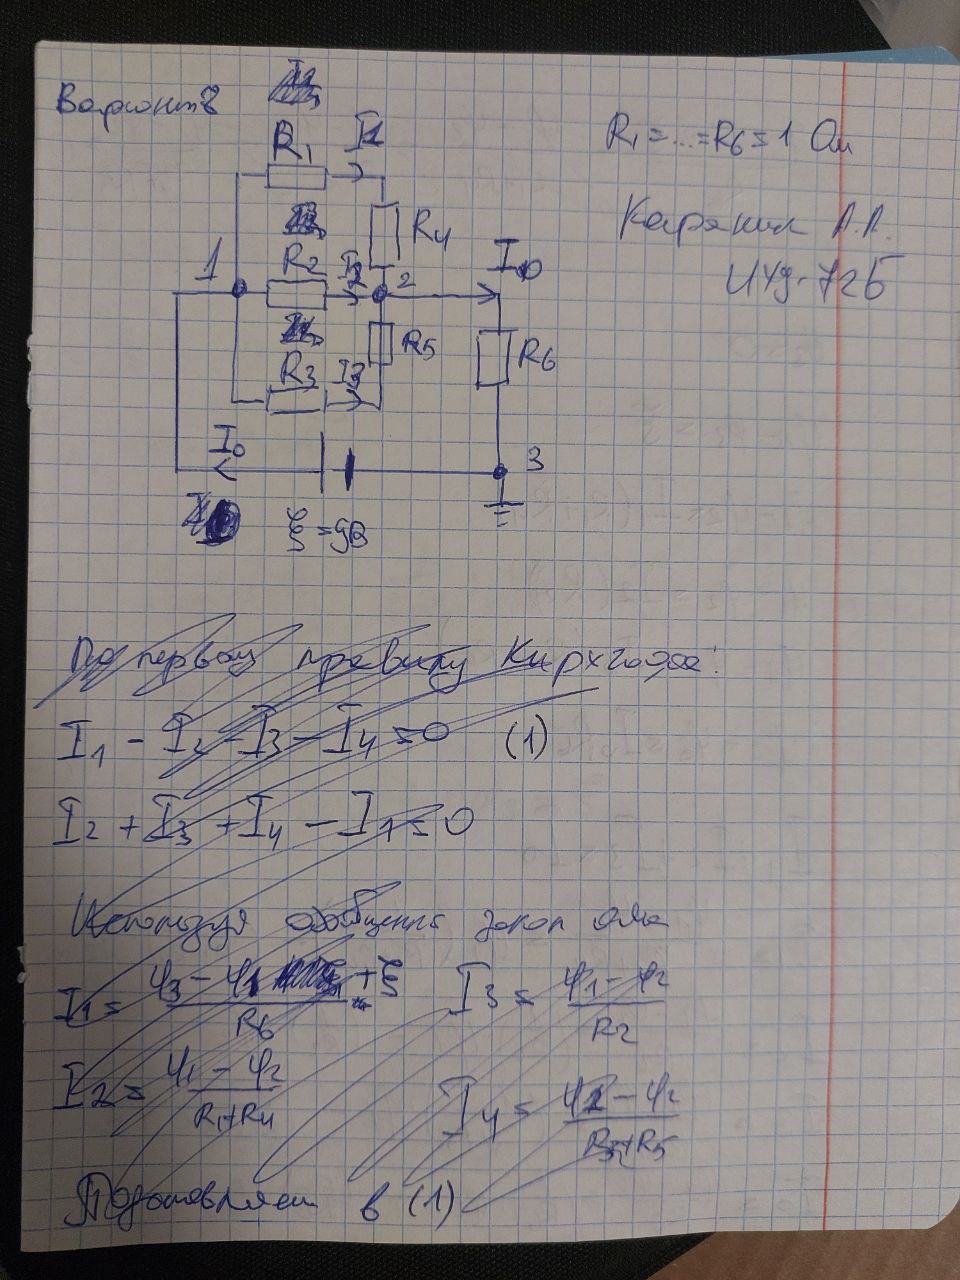 Вариант 8
R₁ = ... = R₆ = 1 Ом
R₁ I₁
R₄
1 R₂ I₂ 2 I₀
ИУ9-72Б
R₅ R₆
R₃ I₃
I₀ 3
ξ = 9В
По первому правилу Кирхгофа:
I₁ - I₂ - I₃ - I₄ = 0 (1)
I₂ + I₃ + I₄ - I₁ = 0
Используя обобщенный закон Ома
I₁ = (φ₃ - φ₁ + ξ) / R₆ I₃ = (φ₁ - φ₂) / R₂
I₂ = (φ₁ - φ₂) / (R₁ + R₄) I₄ = (φ₁ - φ₂) / (R₃ + R₅)
Подставляем в (1)